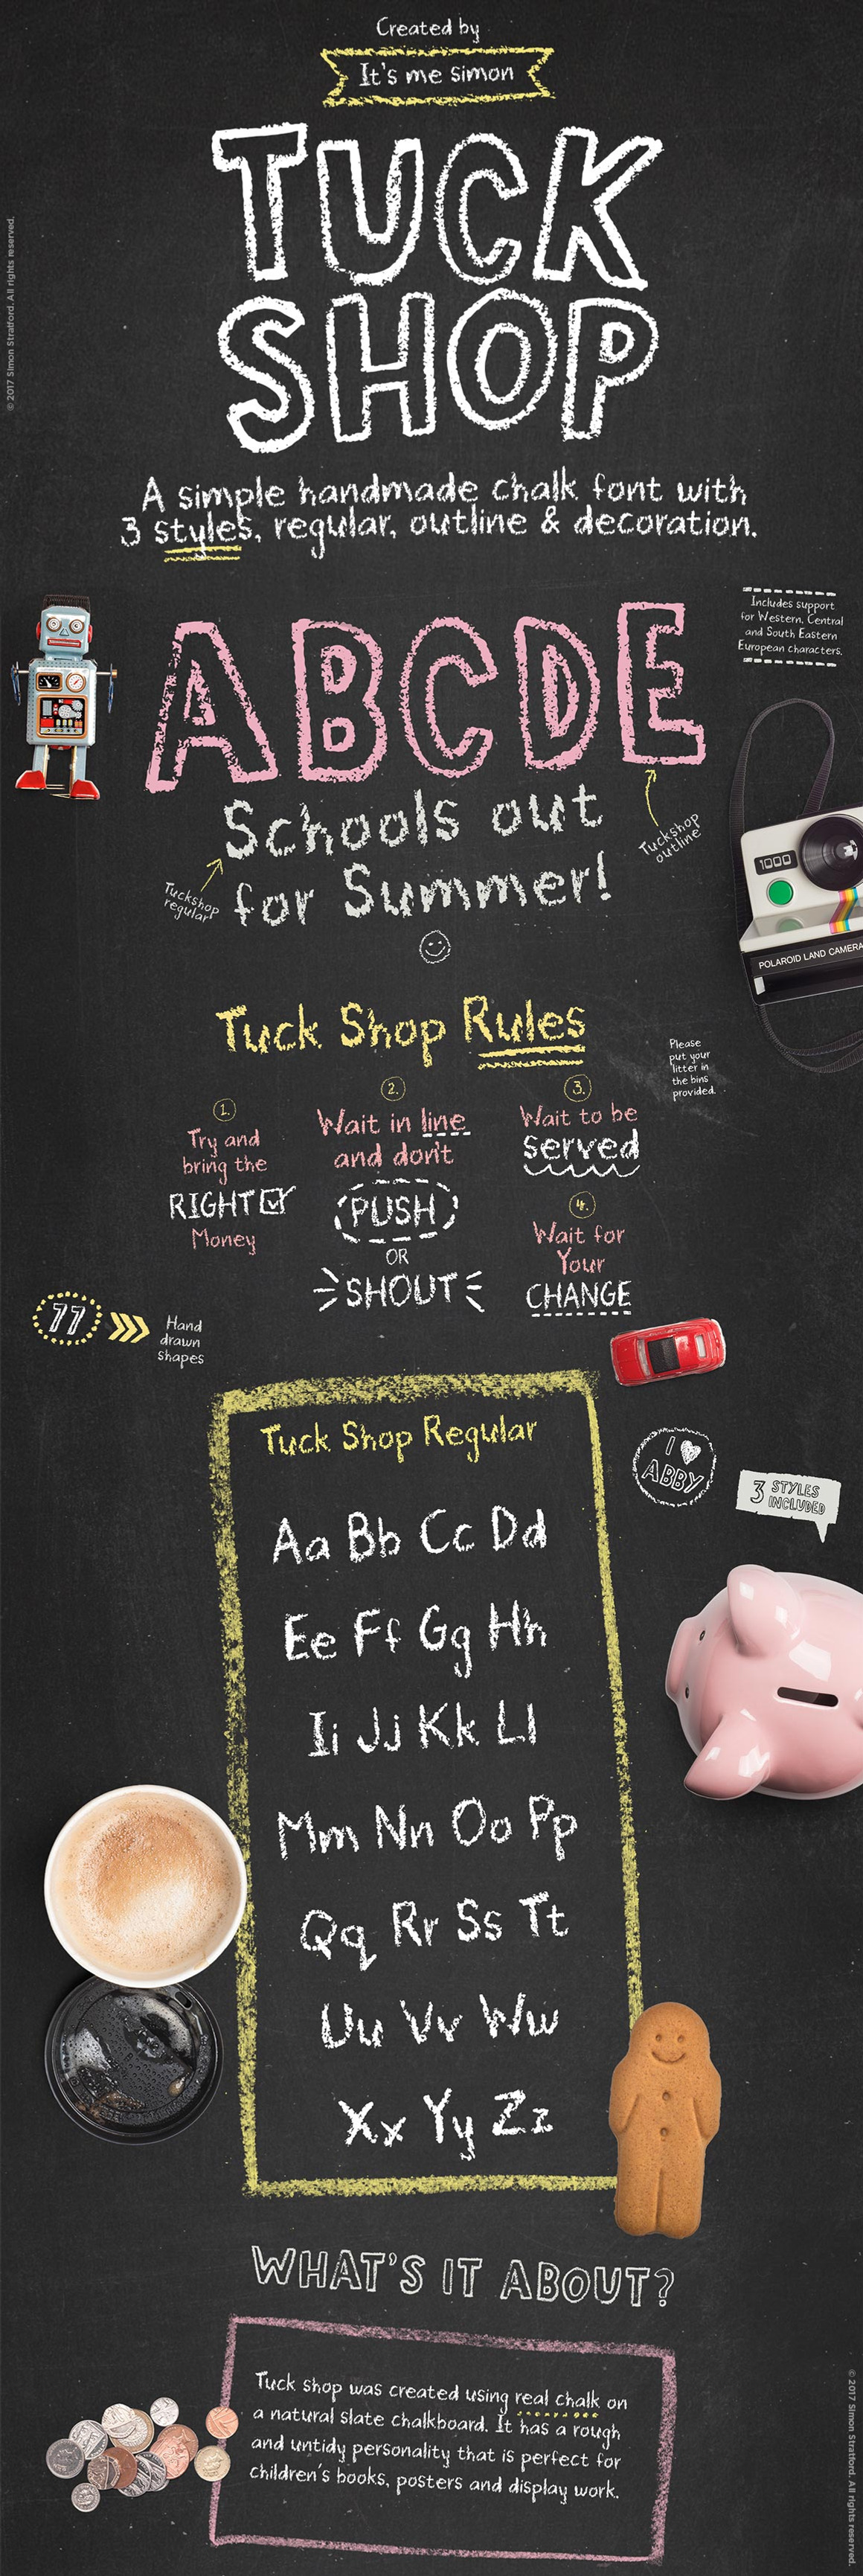 Created by
It's me simon
TUCK
SHOP
© 2017 Simon Stratford. All rights reserved.
A simple handmade chalk font with
3 styles, regular, outline & decoration.
Includes support
for Western, Central
and South Eastern
European characters.
ABCDE
Schools out
for Summer!
Tuckshop
outline
Tuckshop
regular
1000
POLAROID LAND CAMERA
Tuck Shop Rules
Please
put your
litter in
the bins
provided.
1.
Try and
bring the
RIGHT
Money
2.
Wait in line
and don't
PUSH
OR
SHOUT
3.
Wait to be
served
4.
Wait for
Your
CHANGE
77
Hand
drawn
shapes
Tuck Shop Regular
I ♥
ABBY
3 STYLES
INCLUDED
Aa Bb Cc Dd
Ee Ff Gg Hh
Ii Jj Kk Ll
Mm Nn Oo Pp
Qq Rr Ss Tt
Uu Vv Ww
Xx Yy Zz
WHAT'S IT ABOUT?
Tuck shop was created using real chalk on
a natural slate chalkboard. It has a rough
and untidy personality that is perfect for
children's books, posters and display work.
© 2017 Simon Stratford. All rights reserved.